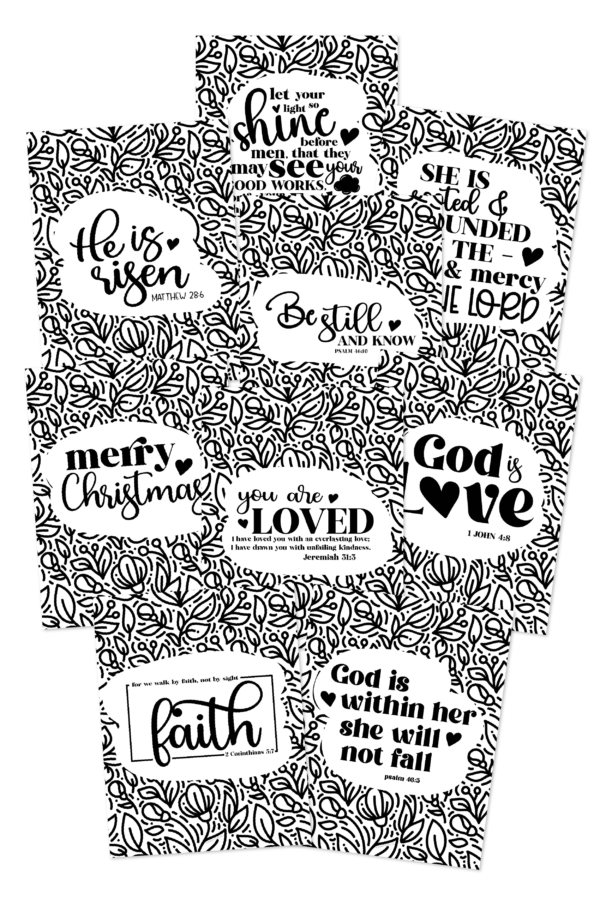 let your
light so
shine
before
men, that they
may see your
GOOD WORKS.
SHE IS
&
THE -
& mercy
LORD
He is
risen
MATTHEW 28:6
Be still
AND KNOW
PSALM 46:10
merry
Christmas
you are
LOVED
I have loved you with an everlasting love;
I have drawn you with unfailing kindness.
Jeremiah 31:3
God is
Love
1 JOHN 4:8
for we walk by faith, not by sight
faith
2 Corinthians 5:7
God is
within her
she will
not fall
psalm 46:5